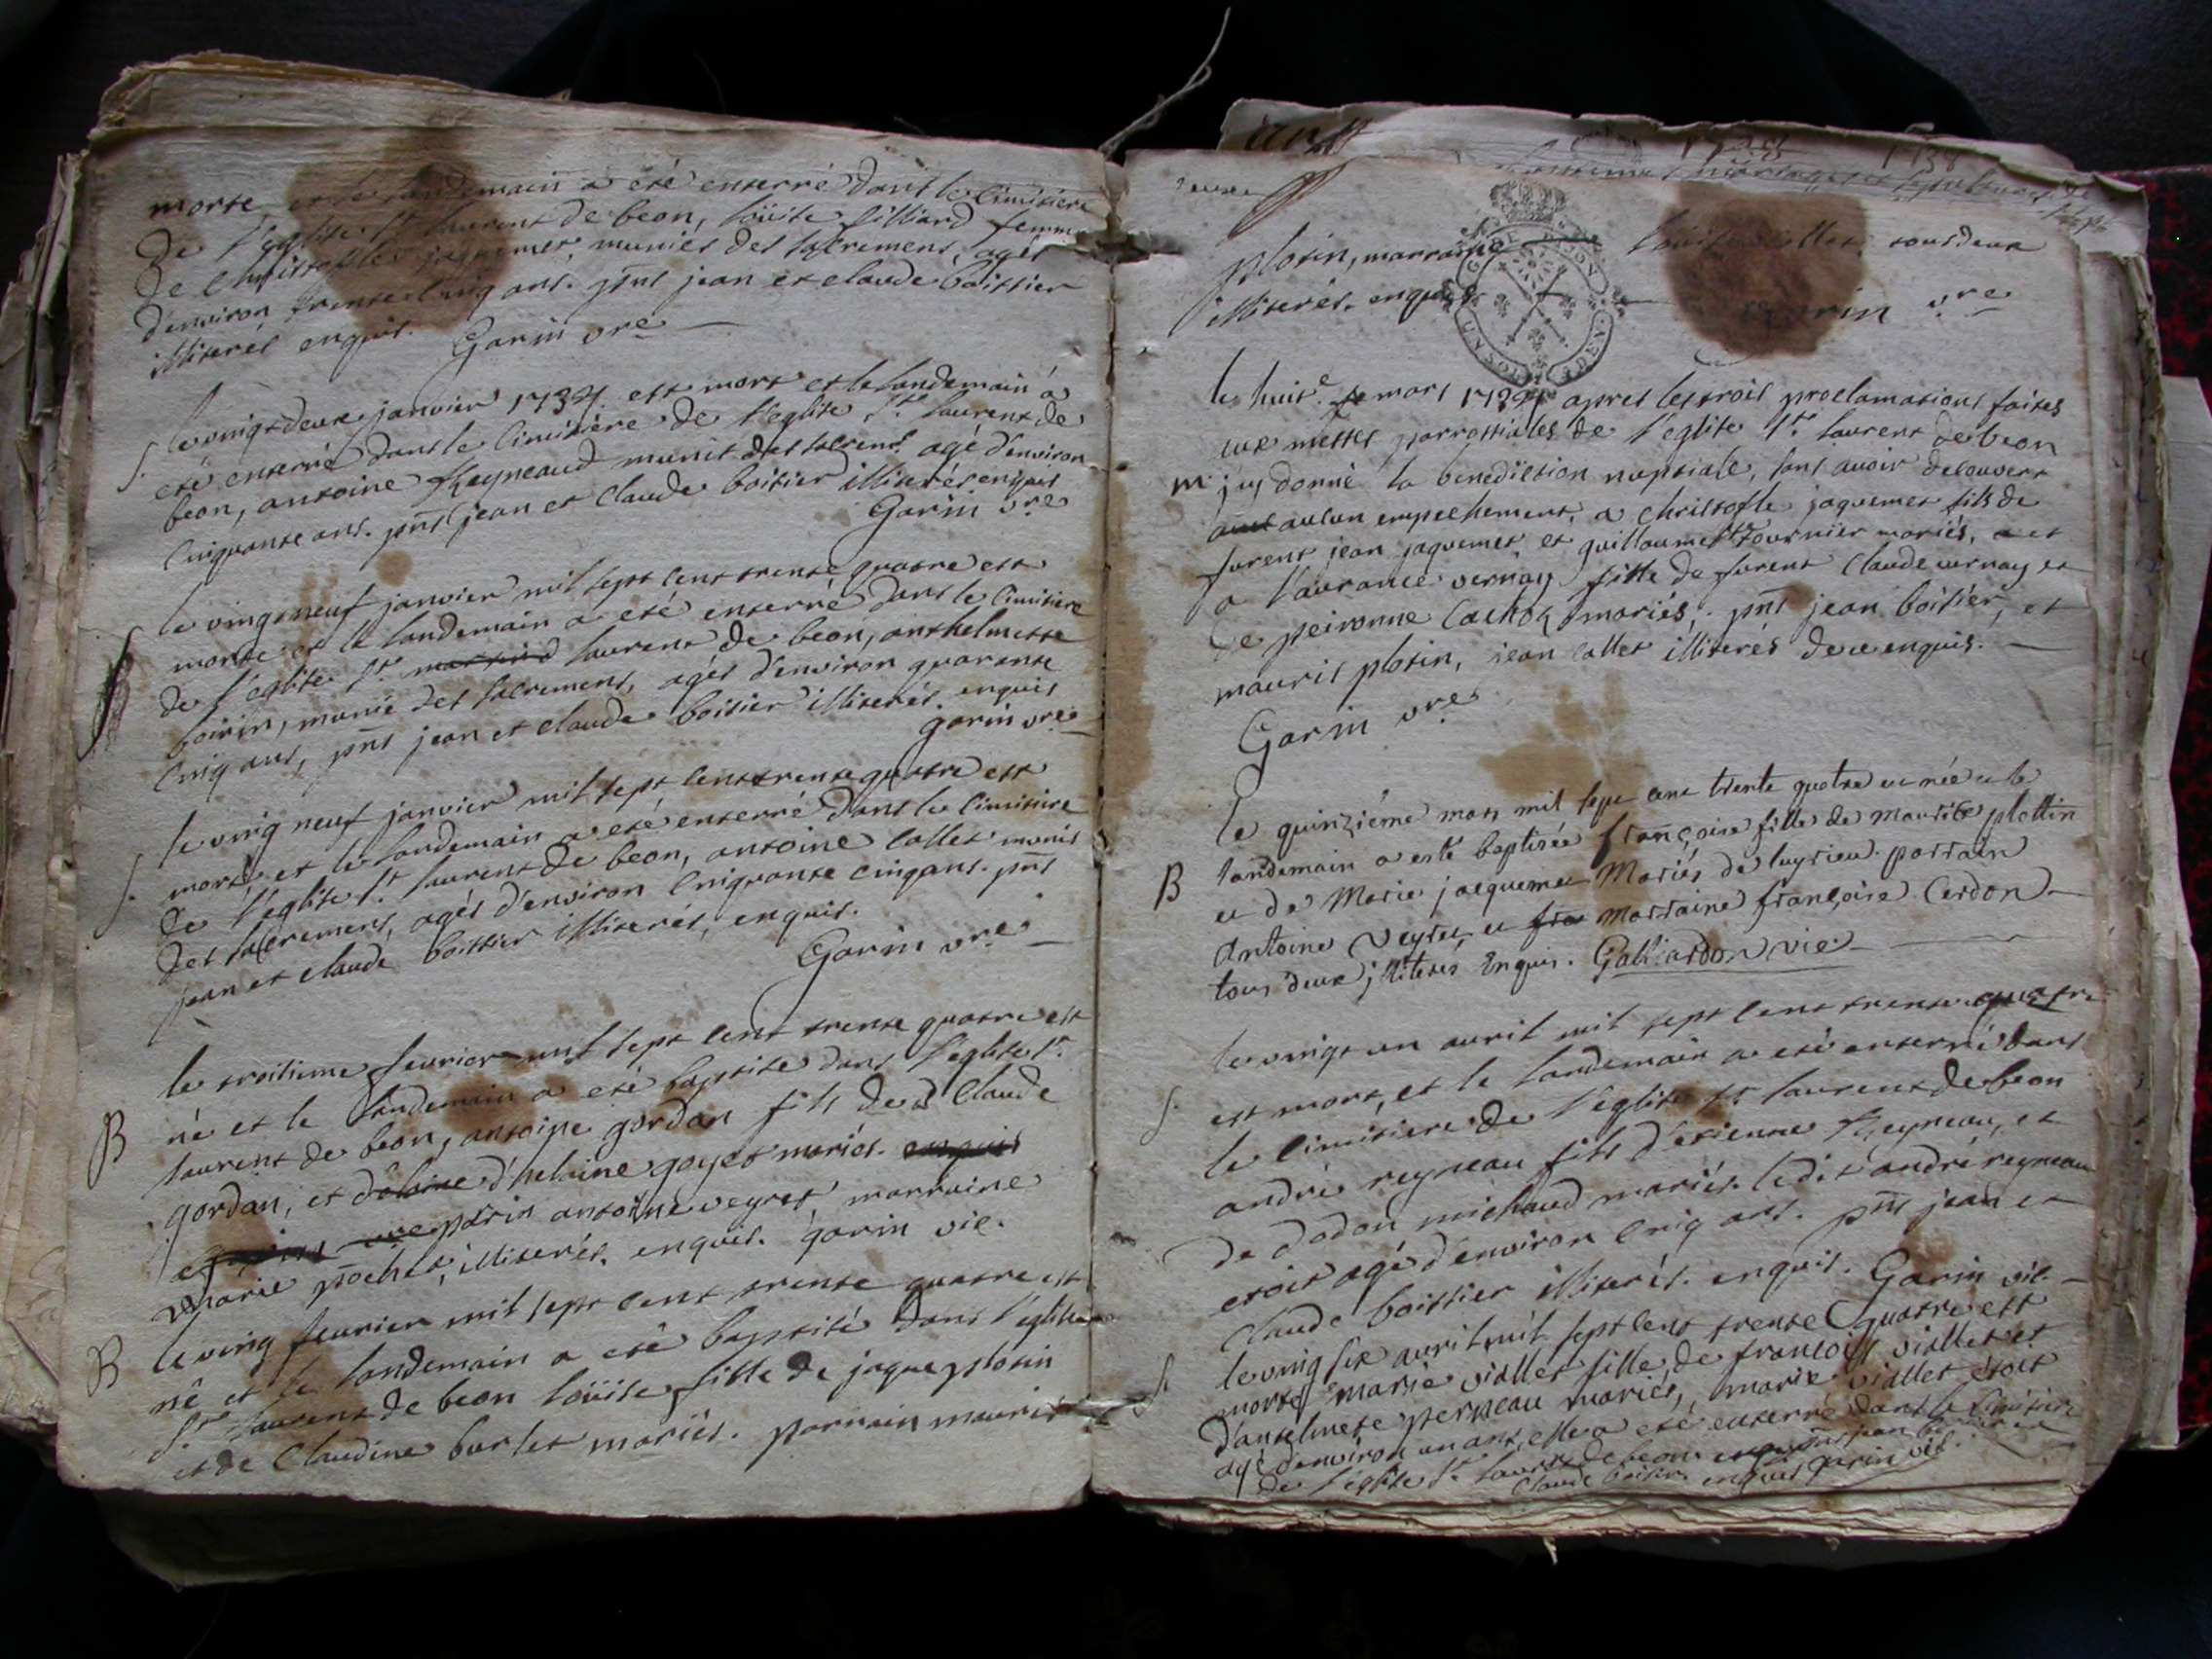 morte et le landemain a eté enterré dans le cimitiere
de l'eglise St laurent de beon, loüise billiard femme
de Christofle jaquemet, munies des sacremens, agés
d'environ trente cinq ans. pnts jean et claude boittier
illiterés enquis. Garin vre
le vingt deux janvier 1734 est mort et le landemain a
S. eté enterré dans le cimitière de l'eglise St laurent de
beon, antoine Reyneaud munit des sacrens. agé d'environ
cinquante ans. pnts jean et claude boitier illiterés enquis
Garin vre
le vingt neuf janvier mil sept cent trente quatre est
morte et le landemain a eté enterré dans le cimitiere
de l'eglise St laurent de beon, anthelmette
boirin, munie des sacremens, agés d'environ quarante
cinq ans, pnts jean et claude boitier illiterés. enquis
garin vre
le ving neuf janvier mil sept cent trente quatre est
S. mort, et le landemain a eté enterré dans le cimitiere
de l'eglise St laurent de beon, antoine callet munis
des sacremens, agés d'environ cinquante cinq ans. pnts
jean et claude boittier illiterés, enquis.
Garin vre
le troisieme fevrier mil sept cent trente quatre est
B né et le landemain a eté baptisé dans l'eglise St
laurent de beon, antoine gordan fils de Claude
gordan, et d'helaine goyet mariés.
parin antoine veyret, marraine
marie pochet, illiterés. enquis. garin vic.
B le ving fevrier mil sept cent trente quatre est
né et le landemain a eté baptisé dans l'eglise
St laurent de beon loüise fille de jaque plotin
et de Claudine burlet mariés. parrain mauris
plotin, marraine tous deux
illiterés. enquis Garin vre
GE DE DIJON
UN SOL DEN
le huite mars 1734 apres les trois proclamations faites
aux messes parrossiales de l'eglise St laurent de beon
m j'ay donné la benediction nuptiale, sans avoir decouvert
aucun empechement, a christofle jaquemet fils de
furent jean jaquemet et guillaumet tournier mariés, et
a laurance vernay fille de furent Claude vernay et
de peironne Cachoz mariés, pnts jean boitier, et
mauris plotin, jean callet illiterés de ce enquis.
Garin vre
le quinziéme mars mil sept cent trente quatre et née et le
B landemain a esté baptisée françoise fille de Maurice plottin
et de Marie jacquemet Mariés de luyrieu. parrain
Antoine Veyret et marraine françoise Cerdon
tous deux jlliterés Enquis. Galliardon vic
le vingt un avril mil sept cent trente quatre
S. est mort, et le landemain a eté enterré dans
le cimitiere de l'eglise St laurent de beon
andré reyneau fils d'etienne Reyneau, et
de dodon michaud mariés. ledit andré reyneau
etoit agé d'environ cinq ans. pnts jean et
Claude boittier illiterés. enquis. Garin vic.
S. le ving six avril mil sept cent trente quatre est
morte marie viallet fille de francois viallet et
d'anselmete perneau mariés, marie viallet etoit
agé d'environ un ans, elle a eté enterré dans le cimitiere
de l'eglise St laurent de beon
Claude boitier enquis garin vic.